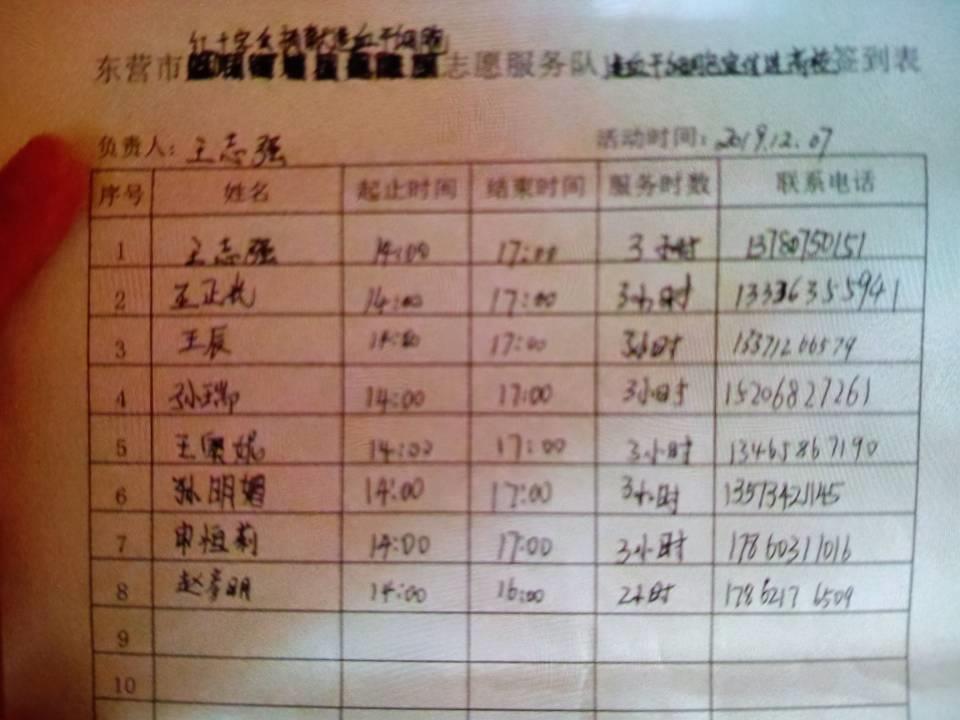 红十字会捐献造血干细胞
东营市志愿服务队造血干细胞宣传进高校签到表
负责人：王志强 活动时间：2019.12.07
序号 姓名 起止时间 结束时间 服务时数 联系电话
1 王志强 14:00 17:00 3小时 13780750151
2 王正 14:00 17:00 3小时 13336355941
3 王辰 14:00 17:00 3小时 13371266579
4 孙瑞 14:00 17:00 3小时 15206827261
5 王 妮 14:00 17:00 3小时 13465867190
6 孙明媚 14:00 17:00 3小时 13573421145
7 申恒莉 14:00 17:00 3小时 17860311016
8 赵彦明 14:00 16:00 2小时 17862176509
9
10